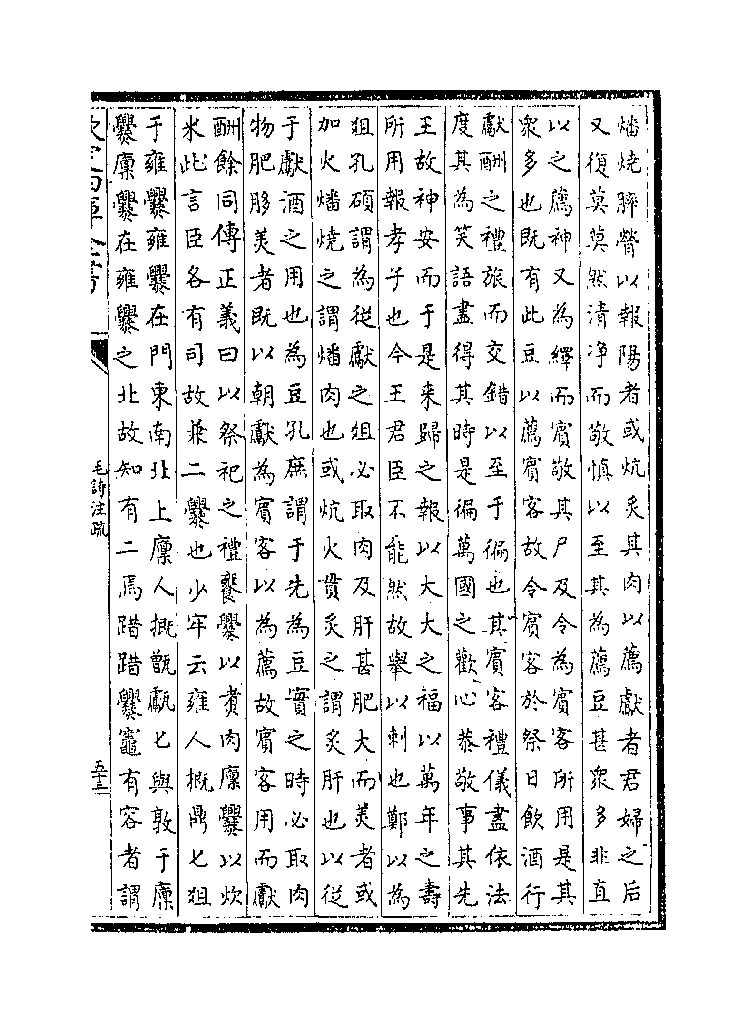 燔燒膟膋以報陽者或炕炙其肉以薦獻者君婦之后
又復莫莫然清净而敬慎以至其為薦豆甚衆多非直
以之薦神又為繹而賔敬其尸及令為賔客所用是其
衆多也既有此豆以薦賔客故令賔客於祭日飲酒行
獻酬之禮旅而交錯以至于徧也其賔客禮儀盡依法
度其為笑語盡得其時是徧萬國之歡心恭敬事其先
王故神安而于是來歸之報以大大之福以萬年之壽
所用報孝子也今王君臣不能然故舉以刺也鄭以為
俎孔碩謂為從獻之俎必取肉及肝甚肥大而美者或
加火燔燒之謂燔肉也或炕火貫炙之謂炙肝也以從
于獻酒之用也為豆孔庶謂于先為豆實之時必取肉
物肥胳美者既以朝獻為賔客以為薦故賔客用而獻
酬餘同傳正義曰以祭祀之禮饔爨以煮肉廩爨以炊
米此言臣各有司故兼二爨也少牢云雍人摡鼎匕俎
于雍爨雍爨在門東南北上廩人摡甑甗匕與敦于廩
爨廩爨在雍爨之北故知有二焉踖踖爨竈有容者謂
欽定四庫全書
毛詩注疏
五十三